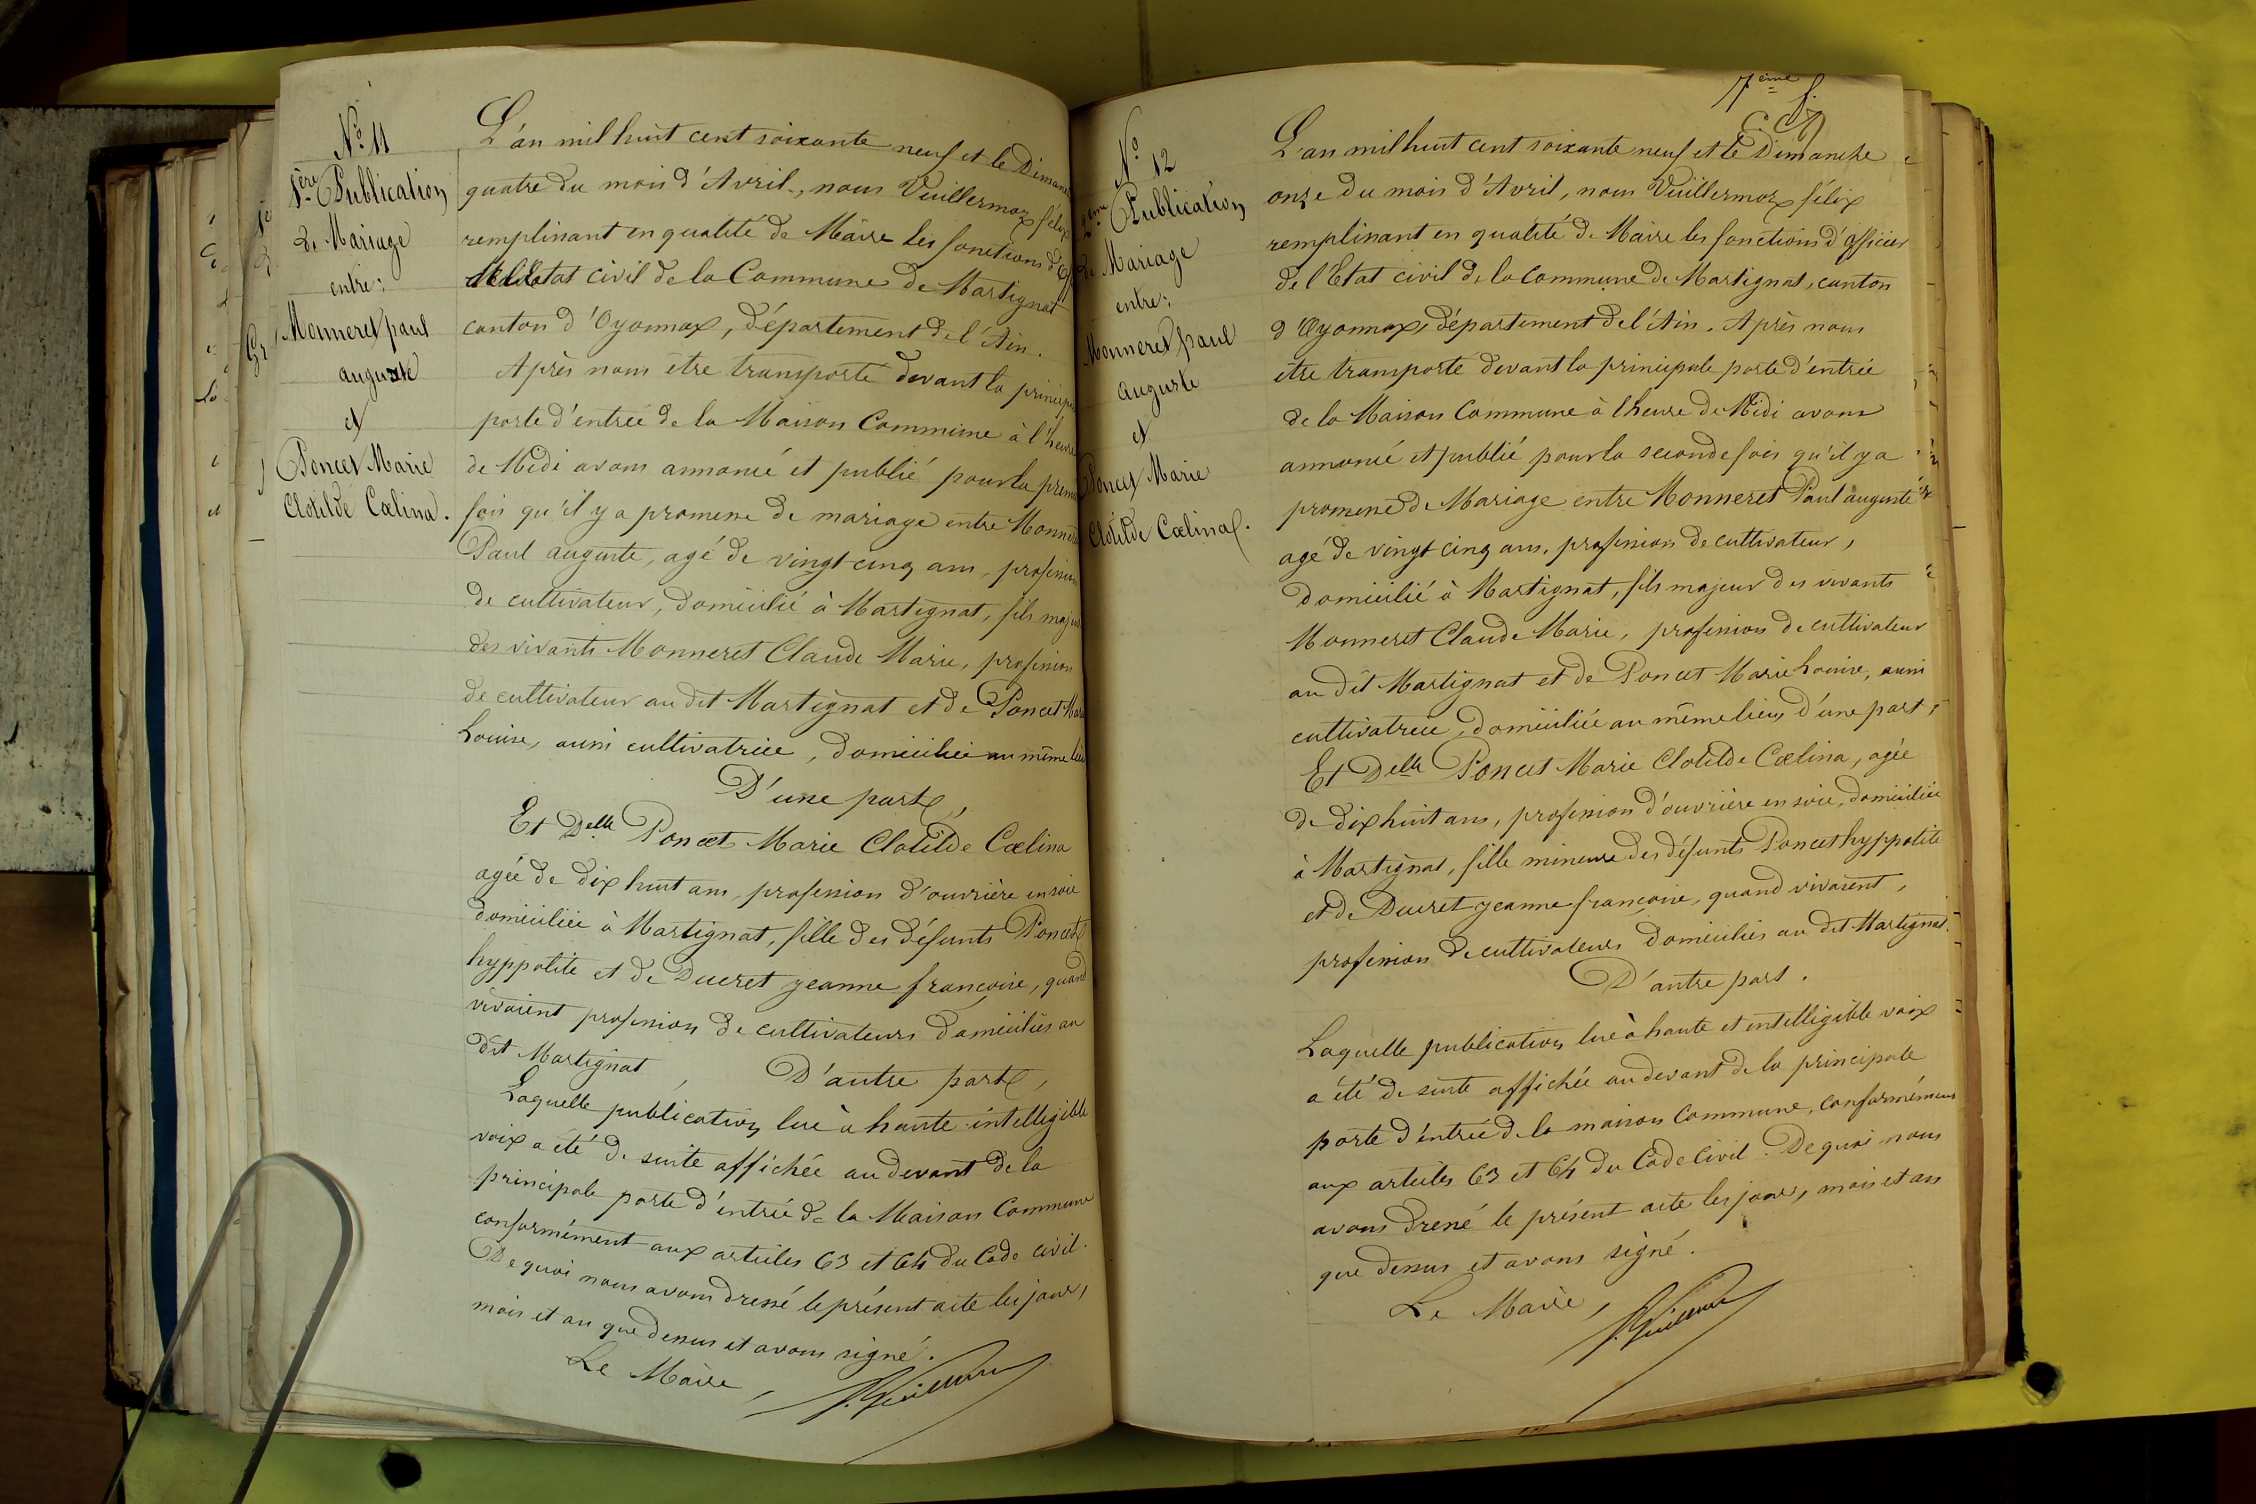 N° 11
1ère Publication
de Mariage
entre:
Monneret paul
auguste
et
Poncet Marie
Clotilde Cœlina.
L'an mil huit cent soixante neuf et le Diman
quatre du mois d'Avril, nous Vuillermoz félix
remplissant en qualité de Maire les fonctions d'Off
de l'Etat civil de la Commune de Martignat
canton d'Oyonnax, département de l'Ain.
Après nous être transporté devant la princip
porte d'entrée de la Maison Commune à l'heure
de Midi avons annoncé et publié pour la prem
fois qu'il y a promesse de mariage entre Monneret
Paul auguste, agé de vingt-cinq ans, profession
de cultivateur, domicilié à Martignat, fils majeur
des vivants Monneret Claude Marie, profession
de cultivateur au dit Martignat et de Poncet Marie
Louise, aussi cultivatrice, domiciliée au même lieu
D'une part,
Et Delle Poncet Marie Clotilde Cœlina
agée de dix huit ans, profession d'ouvrière en soie
domiciliée à Martignat, fille des défunts Poncet
hyppolite et de Ducret jeanne françoise, quand
vivaient profession de cultivateurs domiciliés au
dit Martignat D'autre part,
Laquelle publication lue à haute intelligible
voix a été de suite affichée au devant de la
principale porte d'entrée de la Maison Commune
conformément aux articles 63 et 64 du Code civil.
De quoi nous avons dressé le présent acte les jour,
mois et an que dessus et avons signé.
Le Maire,
7ème f.
N° 12
2ème Publication
de Mariage
entre:
Monneret paul
auguste
et
Poncet Marie
Clotilde Cœlina.
L'an mil huit cent soixante neuf et le Dimanche
onze du mois d'Avril, nous Vuillermoz félix
remplissant en qualité de Maire les fonctions d'officier
de l'Etat civil de la Commune de Martignat, canton
d'Oyonnax, département de l'Ain. Après nous
être transporté devant la principale porte d'entrée
de la Maison Commune à l'heure de Midi avons
annoncé et publié pour la seconde fois qu'il y a
promesse de Mariage entre Monneret Paul auguste
agé de vingt cinq ans, profession de cultivateur,
domicilié à Martignat, fils majeur des vivants
Monneret Claude Marie, profession de cultivateur
au dit Martignat et de Poncet Marie Louise, aussi
cultivatrice, domiciliée au même lieu, d'une part,
Et Delle Poncet Marie Clotilde Cœlina, agée
de dix huit ans, profession d'ouvrière en soie, domiciliée
à Martignat, fille mineure des défunts Poncet hyppolite
et de Ducret jeanne françoise, quand vivaient,
profession de cultivateurs domiciliés au dit Martignat.
D'autre part.
Laquelle publication lue à haute et intelligible voix
a été de suite affichée au devant de la principale
porte d'entrée de la maison Commune, conformément
aux articles 63 et 64 du Code Civil. De quoi nous
avons dressé le présent acte les jour, mois et an
que dessus et avons signé.
Le Maire,